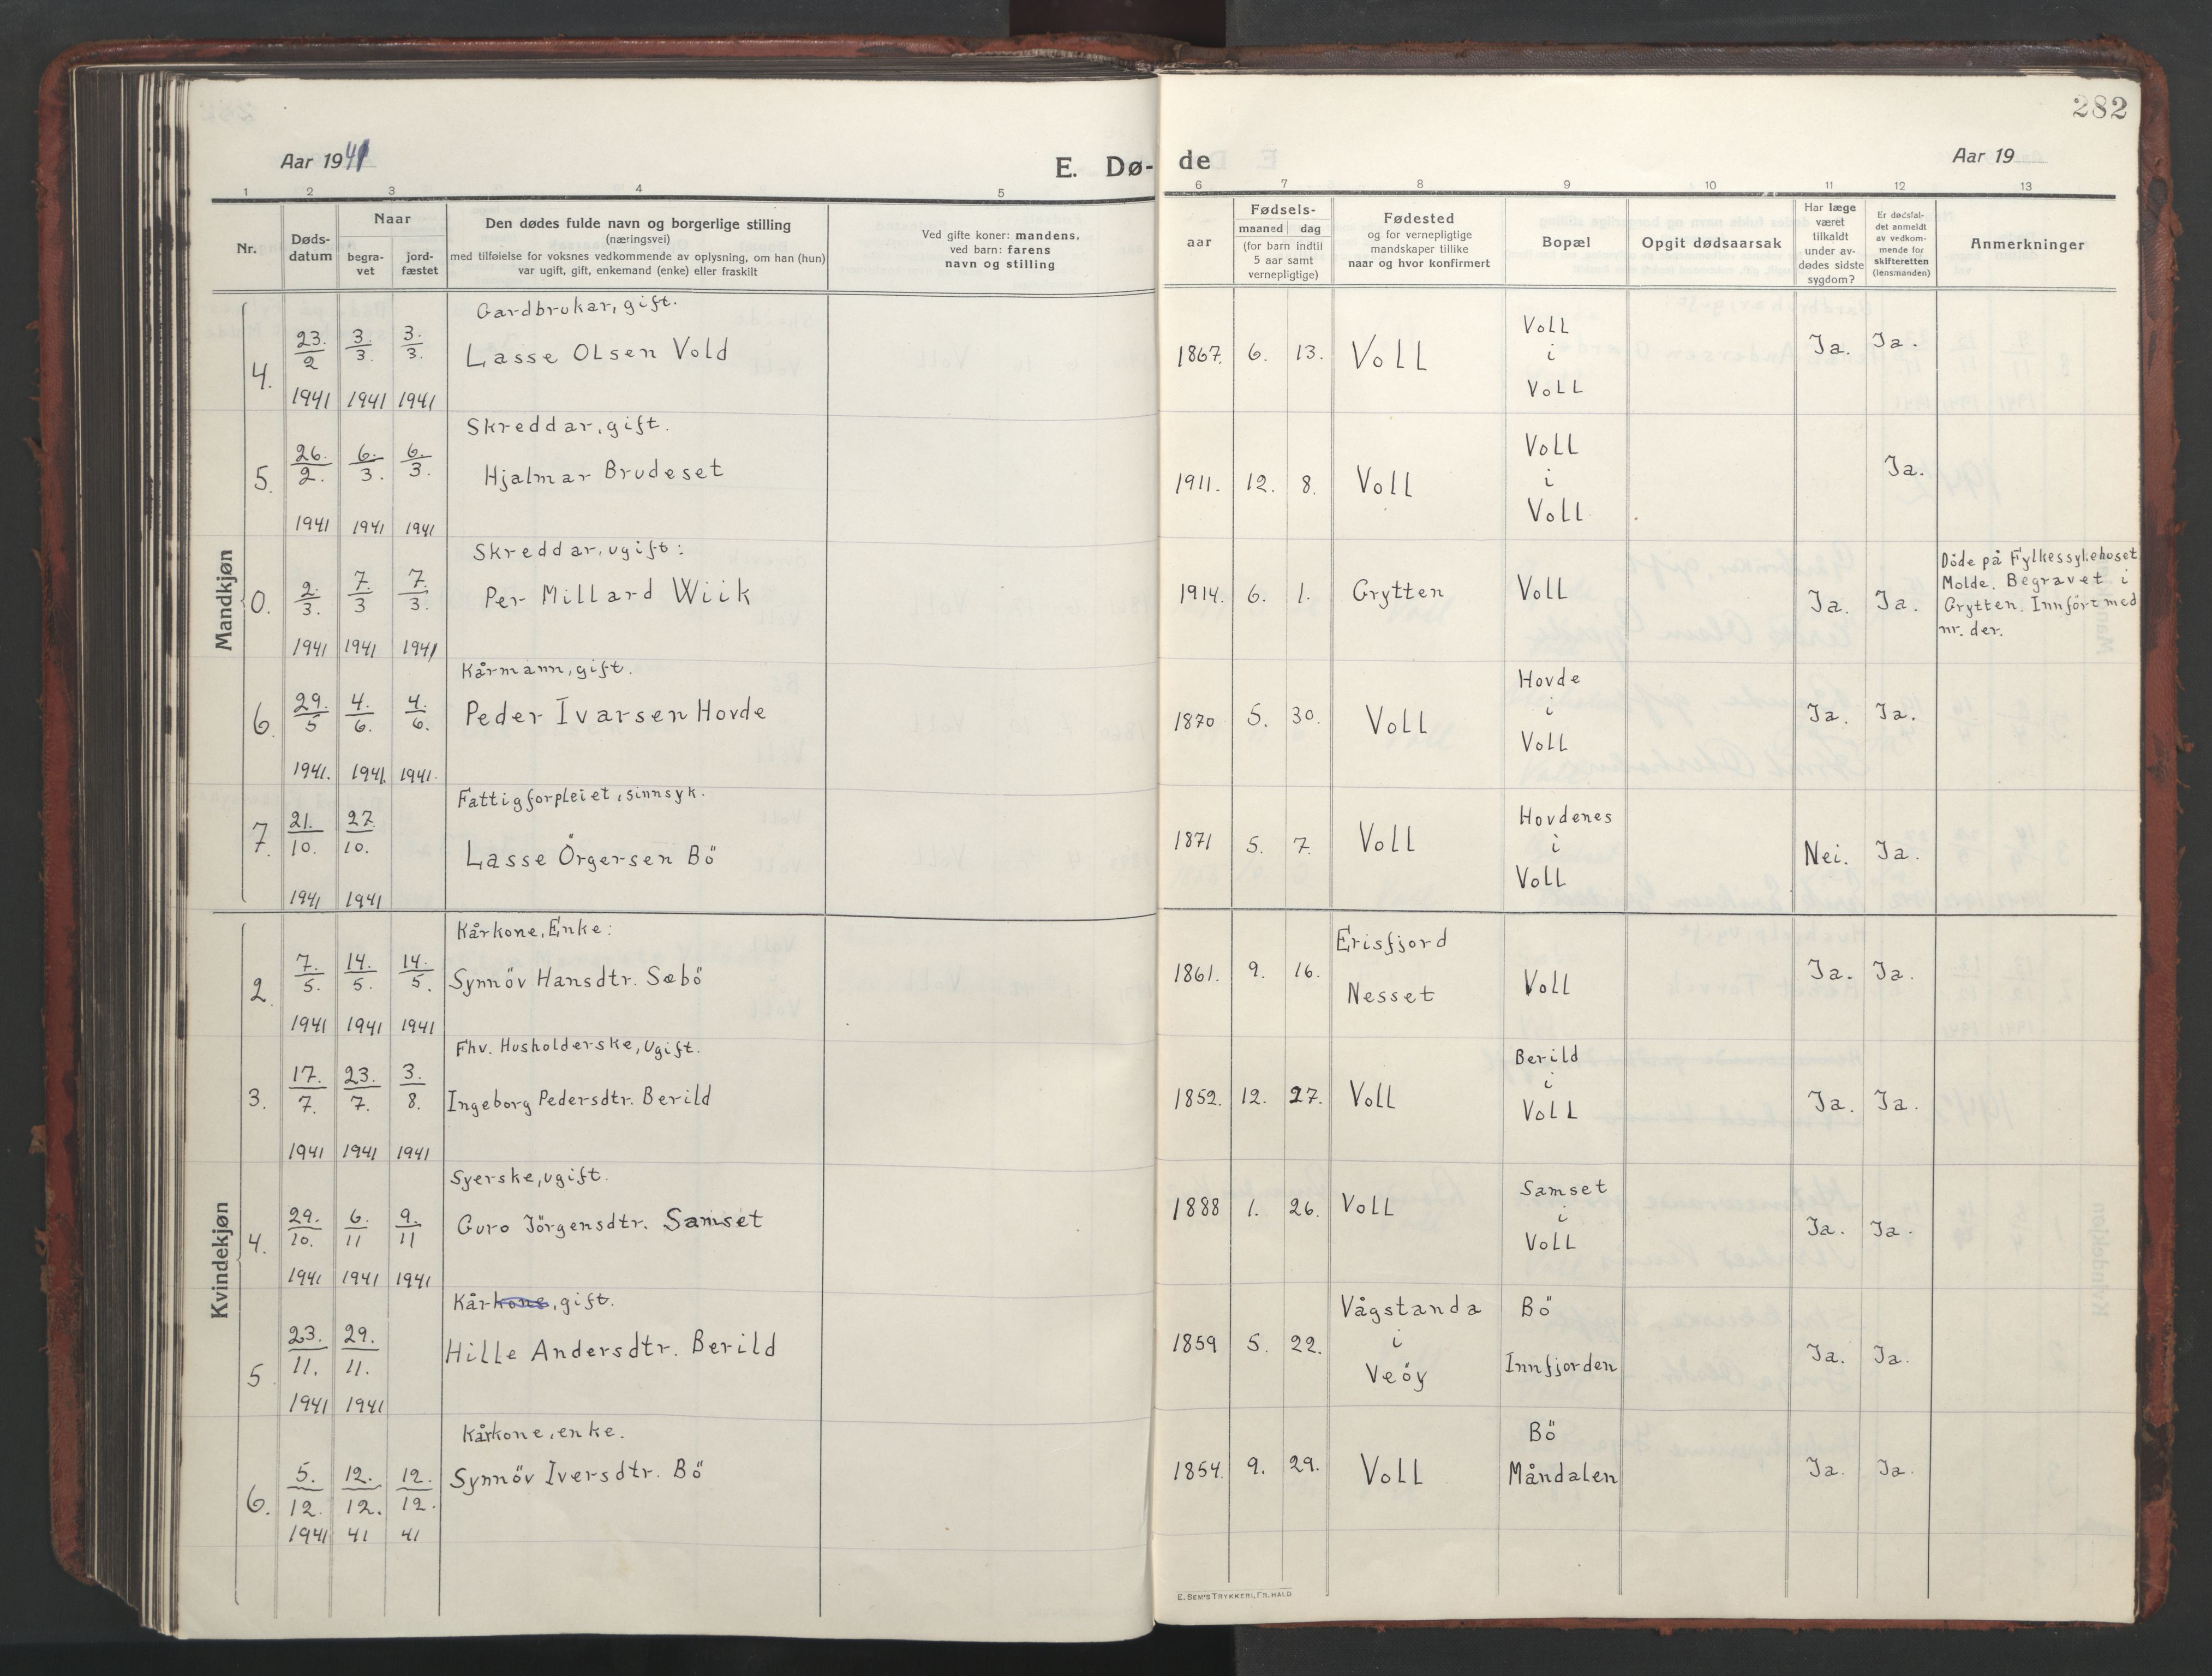 282
Aar 1941
E. Dø-
de
Aar 19
1 2 3 4 5 6 7 8 9 10 11 12 13
Nr.
Døds-
datum
Naar
begra-
vet
jord-
fæstet
Den dødes fulde navn og borgerlige stilling
(næringsvei)
med tilføielse for voksnes vedkommende av oplysning, om han (hun)
var ugift, gift, enkemand (enke) eller fraskilt
Ved gifte koner: mandens,
ved barn: farens
navn og stilling
Fødsels-
aar
maaned dag
(for barn indtil
5 aar samt
vernepligtige)
Fødested
og for vernepligtige
mandskaper tillike
naar og hvor konfirmert
Bopæl
Opgit dødsaarsak
Har læge
været
tilkaldt
under av-
dødes sidste
sygdom?
Er dødsfal-
det anmeldt
av vedkom-
mende for
skifteretten
(lensmanden)
Anmerkninger
Mandkjøn
Gardbrukar, gift.
4. 23./2 3./3. 3./3. Lasse Olsen Vold 1867. 6. 13. Voll Voll i Voll Ja. Ja.
1941 1941 1941
Skreddar, gift.
5. 26./2. 6./3. 6./3. Hjalmar Brudeset 1911. 12. 8. Voll Voll i Voll Ja.
1941 1941 1941
Skreddar, ugift:
0. 2./3. 7./3 7./3. Per Millard Wiik 1914. 6. 1. Grytten Voll Ja. Ja.
1941 1941 1941
Döde på Fylkessykehuset
Molde. Begravet i
Grytten. Innfört med
nr. der.
Kårmann, gift.
6. 29./5 4./6. 4./6. Peder Ivarsen Hovde 1870 5. 30. Voll Hovde i Voll Ja. Ja.
1941. 1941. 1941.
Fattigforpleiet, sinnsyk.
7. 21./10. 27./10. Lasse Örgersen Bö 1871 5. 7. Voll Hovdenes i Voll Nei. Ja.
1941 1941
Kvindekjøn
Kårkone, Enke:
2. 7./5. 14./5. 14./5. Synnöv Hansdtr. Sæbö 1861. 9. 16. Erisfjord Nesset Voll Ja. Ja.
1941 1941 1941
Fhv. Husholderske, Ugift.
3. 17./7. 23./7. 3./8. Ingeborg Pedersdtr. Berild 1852. 12. 27. Voll Berild i Voll Ja. Ja.
1941 1941 1941
Syerske, ugift.
4. 29./10. 6./11 9./11 Guro Jörgensdtr. Samset 1888 1. 26. Voll Samset i Voll Ja. Ja.
1941 1941 1941
Kårkone, gift.
5. 23./11. 29./11. Hille Andersdtr. Berild 1859 5. 22. Vågstanda i Veöy Bö Innfjorden Ja. Ja.
1941 1941
Kårkone, enke.
6. 5./12. 12./12. 12./12. Synnöv Iversdtr. Bö 1854. 9. 29. Voll Bö Måndalen Ja. Ja.
1941 41 41
E. SEM'S TRYKKERI, FR. HALD